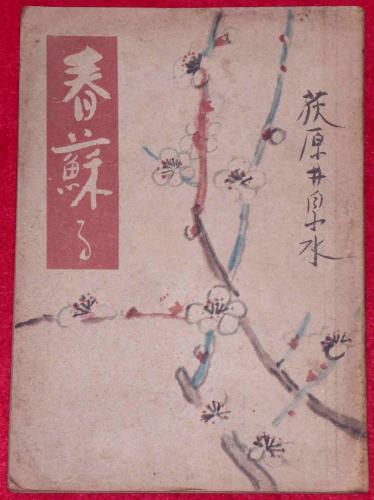 荻原井泉水
春蘇る